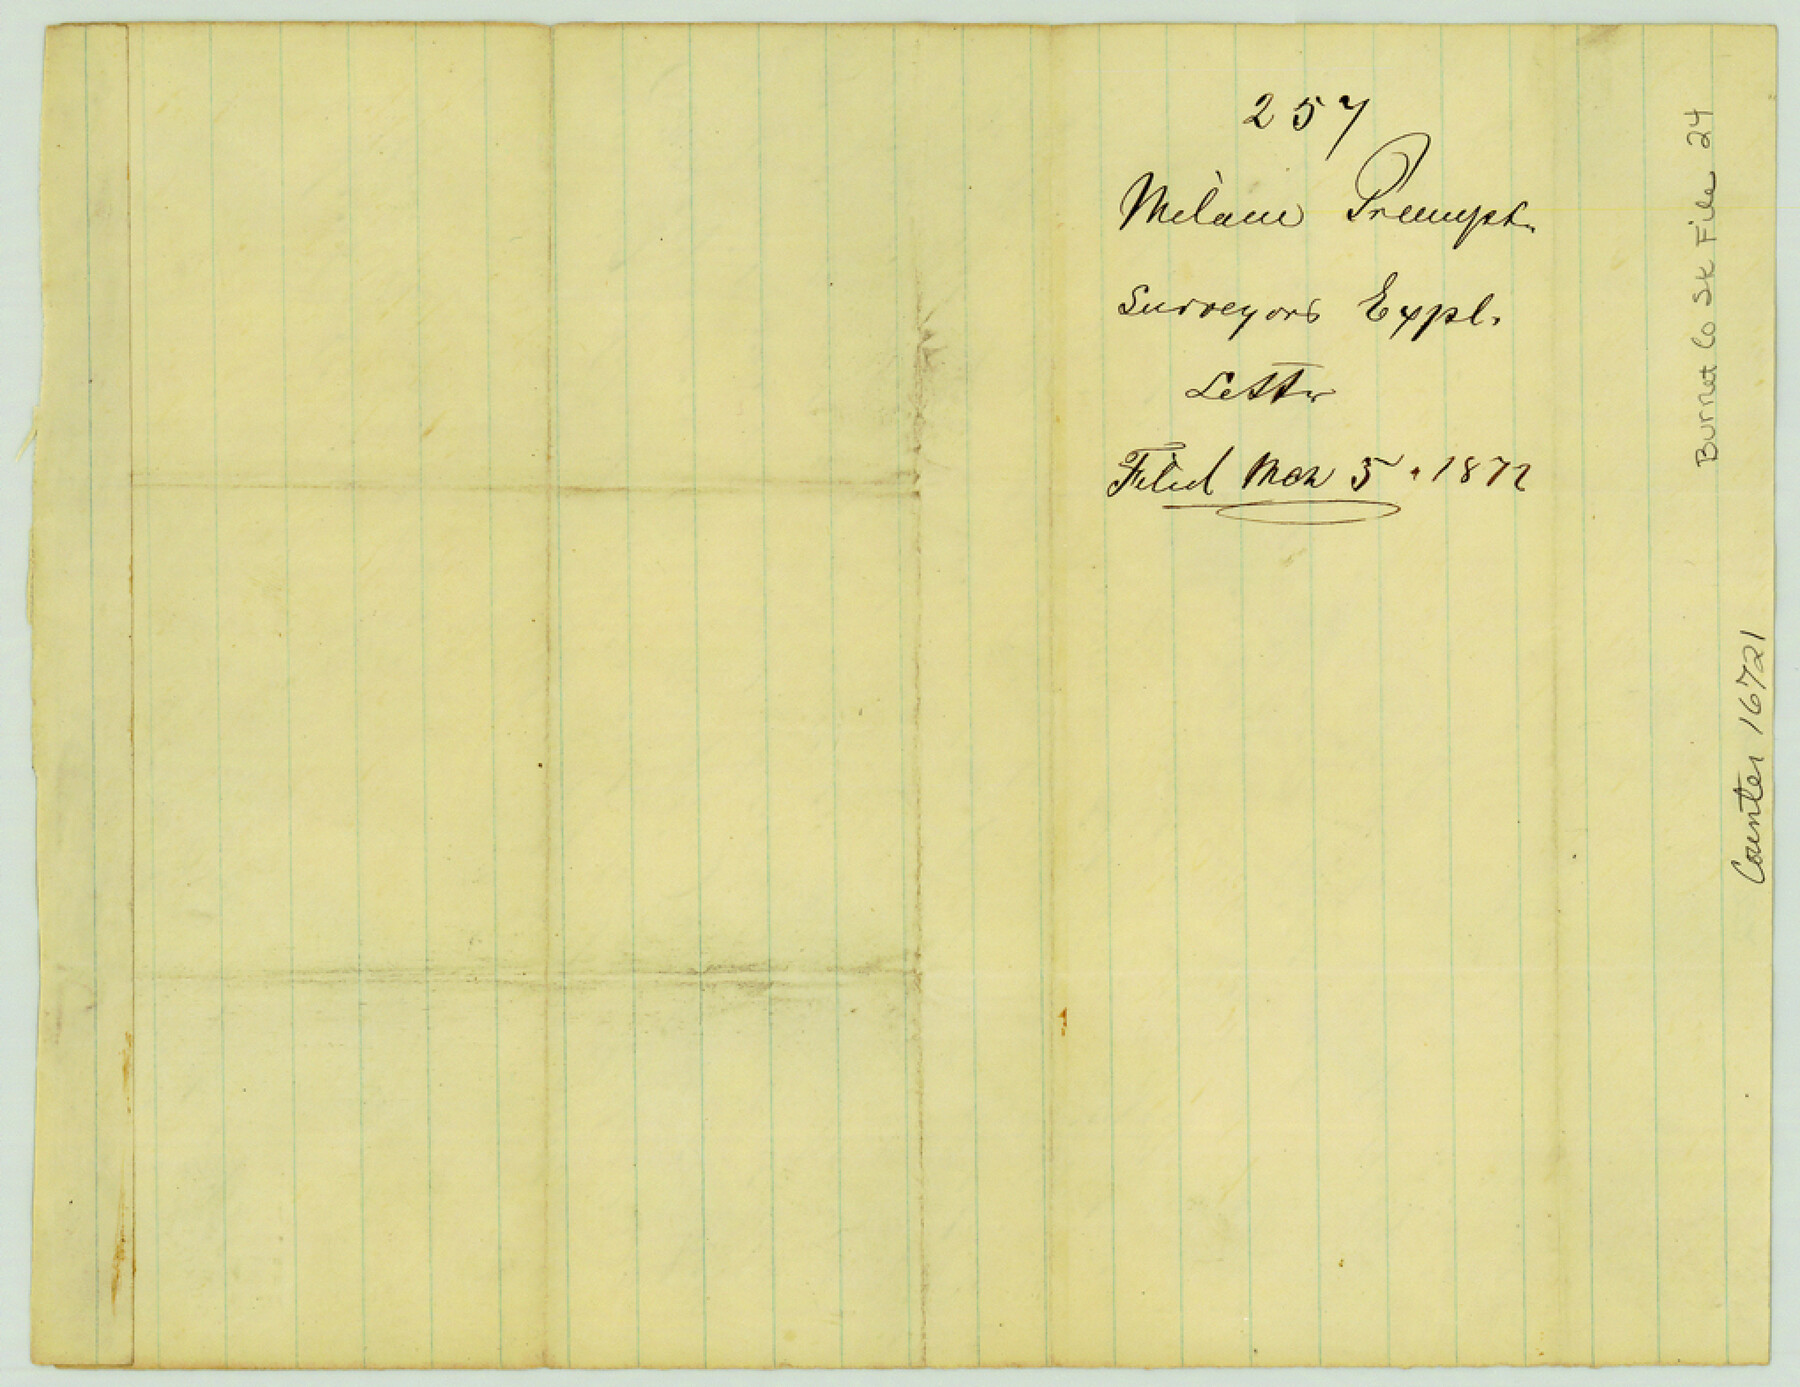 257
Milam Preempt.
Surveyors Expl.
Letter
Filed Mch 5. 1872
Burnet Co Sk File 24
Counter 16721